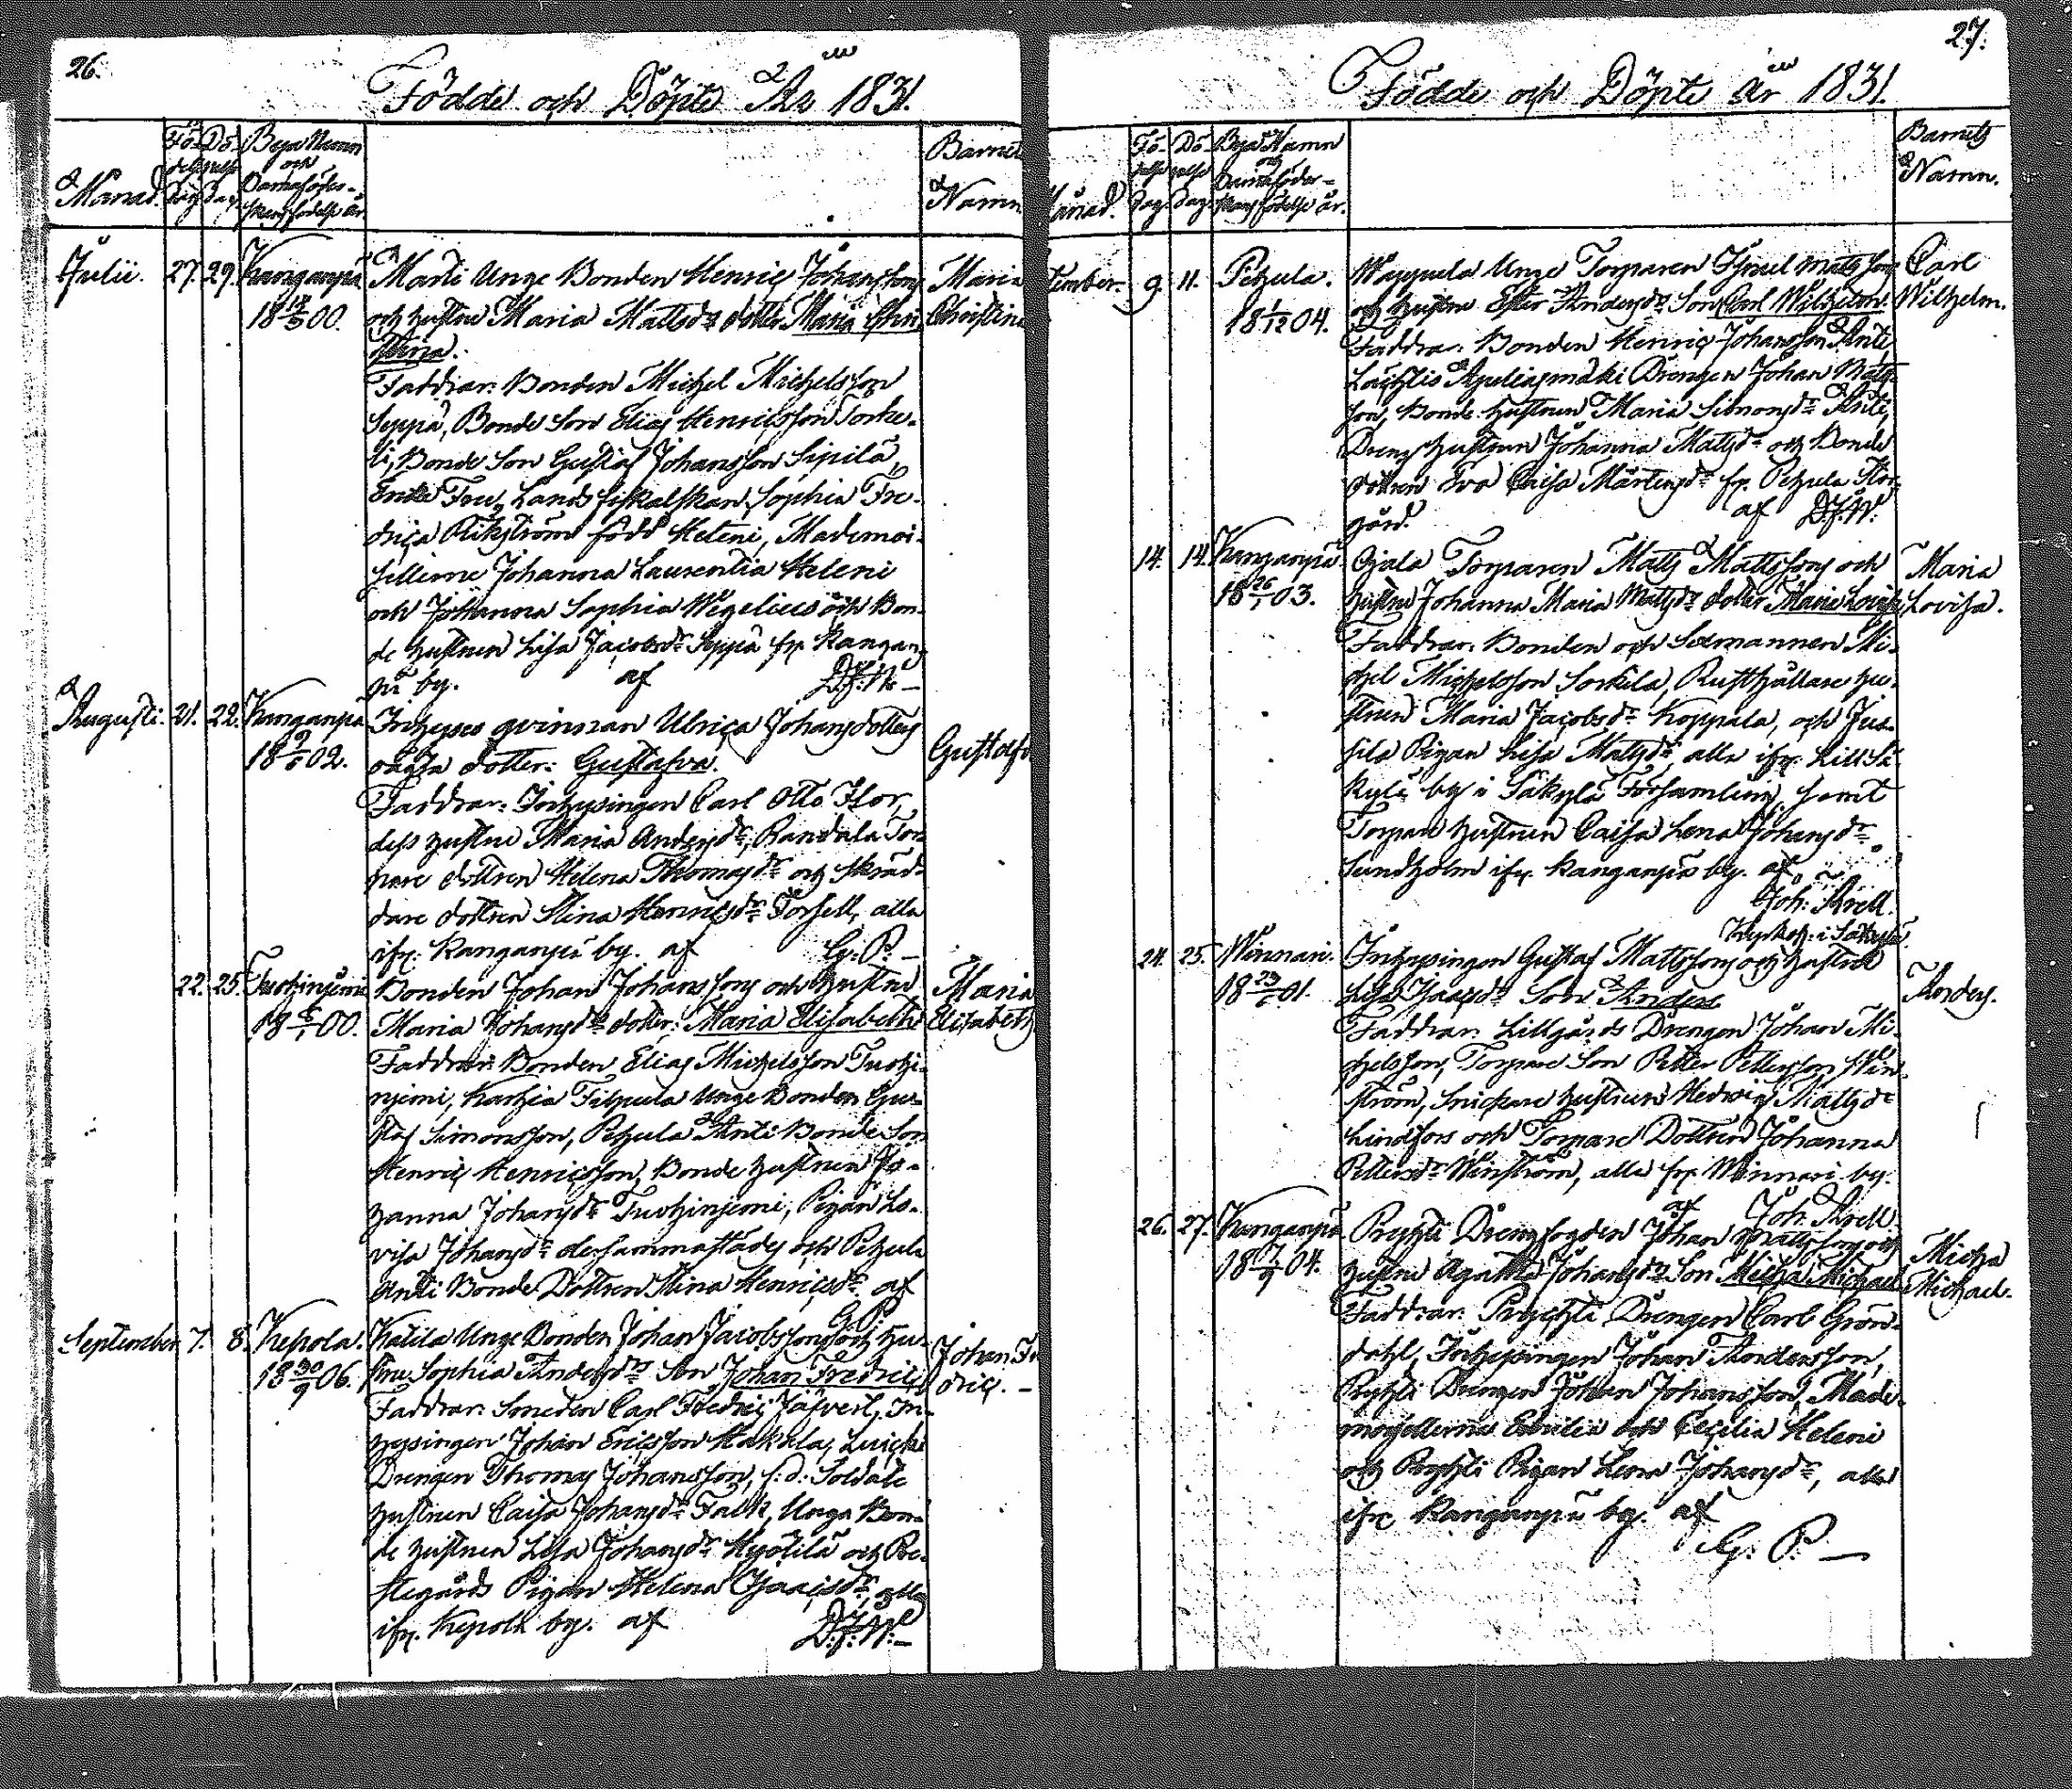 26.
Födde och Döpte År 1831.
Månad.
Fö-
delse
Dag
Dö-
pelse
Dag
Byns Namn
och
Barnaföder-
skans födelse år.
Barnets
Namn
Julii. 27. 29. Kanganpä
18 00.
Marti Unge Bonden Henric Johanssons
och hustrus Maria Mattsdrs dotter Maria Chri
stina.
Faddrar: Bonden Michel Michelsson
Seppä, Bonde Son Elias Henricsson Sorke-
li, Bonde Son Gustaf Johansson Sipilä,
Enke Fru, Lands fiskalskan, Sophia Fre-
drica født Heleni, Mademoi-
sellerne Johanna Laurentia Heleni
och Johanna Sophia Wegelius och Bon-
de hustrun Lisa Jacobsdr Seppä fr. Kangan-
pä by. af D.J.W.-
Maria
Christina
Augusti. 21. 22. Kanganpä
18 02.
Inhyses qvinnan Ulrica Johansdotters
oägta dotter: Gustafva.
Faddrar: Inhysingen Carl Otto Flor,
dess hustru Maria Andersdr, Randala Tor-
pare dottren Helena Thomasdr och skräd-
dare dottren Stina Henricsdr Forsell, alla
ifr. Kanganpä by. af G. P. -
Gustafv
22. 25. Tuohiniemi
18 00.
Bonden Johan Johanssons och hustrus
Maria Johansdrs dotter: Maria Elisabeth.
Faddrar: Bonden Elias Michelsson Tuohi-
njemi, Karhia Filpula Unge Bonden Gu-
staf Simonsson, Pehula Anti Bonde Son
Henric Henricsson, Bonde hustrun Jo-
hanna Johansdr Tuohinjemi, Pigan Lo-
visa Johansdr dersammastädes och Pehula
Anti Bonde Dottren Stina Henricsdr. af
G. P.
Maria
Elisabeth
September 7. 8. Kepola.
18 30/9 06.
Katila Unge Bonden Johan Jacobssons och hu-
strus Sophia Andersdrs Son Johan Fredric
Faddrar: Smeden Carl Fredric Jäfvert, In-
hysingen Johan Ericsson Hakala,
Drengen Thomas Johansson, f. d. Soldats
hustrun Caisa Johansdr Falk, Unga Bon-
de hustrun Lisa Johansdr och Pre-
stegårds Pigan Helena Isaacsdr, alla
ifr. Kepola by. af D.J.W.-
Johan Fr
dric. -
27.
Födde och Döpte År 1831.
Månad.
Fö-
delse
Dag.
Dö-
pelse
Dag.
Byns Namn
och
Barnaföder-
skans födelse år.
Barnets
Namn.
tember. 9. 11. Pehula.
18 1/12 04.
Unge Torparen Israel Mattssons
och hustrus Ester Andersdrs Son Carl Wilhelm.
Faddrar: Bonden Henric Johansson Anti
Drengen Johan Matts-
son, Bonde hustrun Maria Simonsdr Anti,
Drengs hustrun Johanna Mattsdr och Bonde
dottren Eva Caisa Mårtensdr fr. Pehula Stor-
gård. af D.J.W.
Carl
Wilhelm.
14. 14. Kanganpä
18 26/1 03.
Ojala Torparen Matts Mattssons och
hustrus Johanna Maria Mattsdrs dotter Maria Lovisa
Faddrar: Bonden och Sexmannen Mi-
chel Michelsson Sorkela, Rusthållare hu-
strun Maria Jacobsdr Koppala, och Jus-
sila Pigan Lisa Mattsdr, alla ifr. Lill Sä-
kylä by i Säkylä Församling, samt
Torpare hustrun Caisa Lena Johansdr
Sundholm ifr. Kanganpä by. af
Joh: Arell.
i Säkylä
Maria
Lovisa.
24. 25. Winnari.
18 01.
Inhysingen Gustaf Mattssons och hustrus
Lisa Isaacsdrs Son Anders
Faddrar: Lillgårds Drengen Johan Mi-
chelsson, Torpare Son Petter Pettersson Win-
ström, Snickare hustrun Hedvig Mattsdr
Lindfors och Torpare Dottren Johanna
Pettersdr Winström, alla fr. Winnari by.
af Joh. Arell.
Anders.
26. 27. Kanganpä
18 7/9 04.
Pryhti Drengfogden Johan Mattssons och
hustrus Agatha Johansdrs Son Micha Michael
Faddrar: Pryhti Drengen Carl Grön-
dahl, Inhysingen Johan Andersson,
Pryhti Drengen Johan Johansson, Made-
moisellerne Emilia och Cecilia Heleni
och Pryhti Pigan Lena Johansdr, alla
ifr. Kanganpä by. af
G. P. -
Micha
Michael.